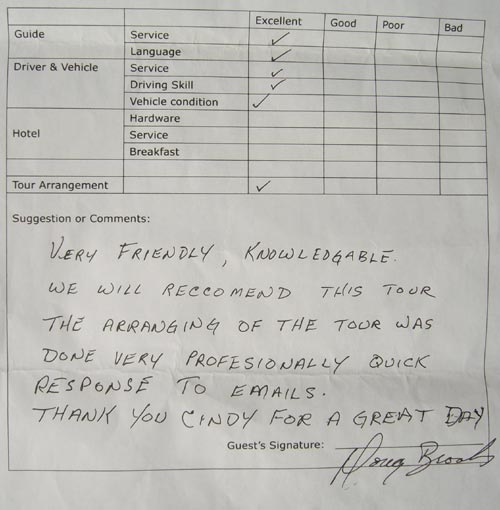 Excellent Good Poor Bad
Guide Service ✓
Language ✓
Driver & Vehicle Service ✓
Driving Skill ✓
Vehicle condition ✓
Hardware
Hotel Service
Breakfast
Tour Arrangement ✓
Suggestion or Comments:
VERY FRIENDLY, KNOWLEDGABLE.
WE WILL RECCOMEND THIS TOUR
THE ARRANGING OF THE TOUR WAS
DONE VERY PROFESIONALLY QUICK
RESPONSE TO EMAILS.
THANK YOU CINDY FOR A GREAT DAY
Guest's Signature: Doug Brooks